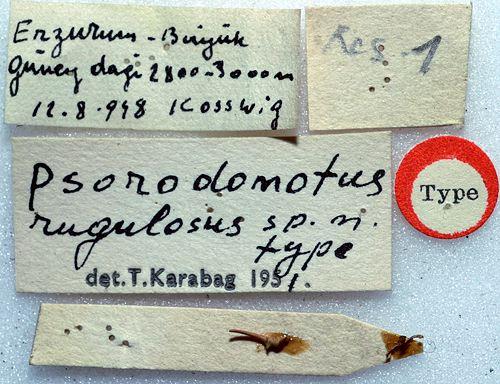 Erzurum - Büyük
güney dagi 2800-3000m
12.8.948 Kosswig
Res-1
Psorodonotus
rugulosus sp. n.
type
det. T. Karabag 1951.
Type